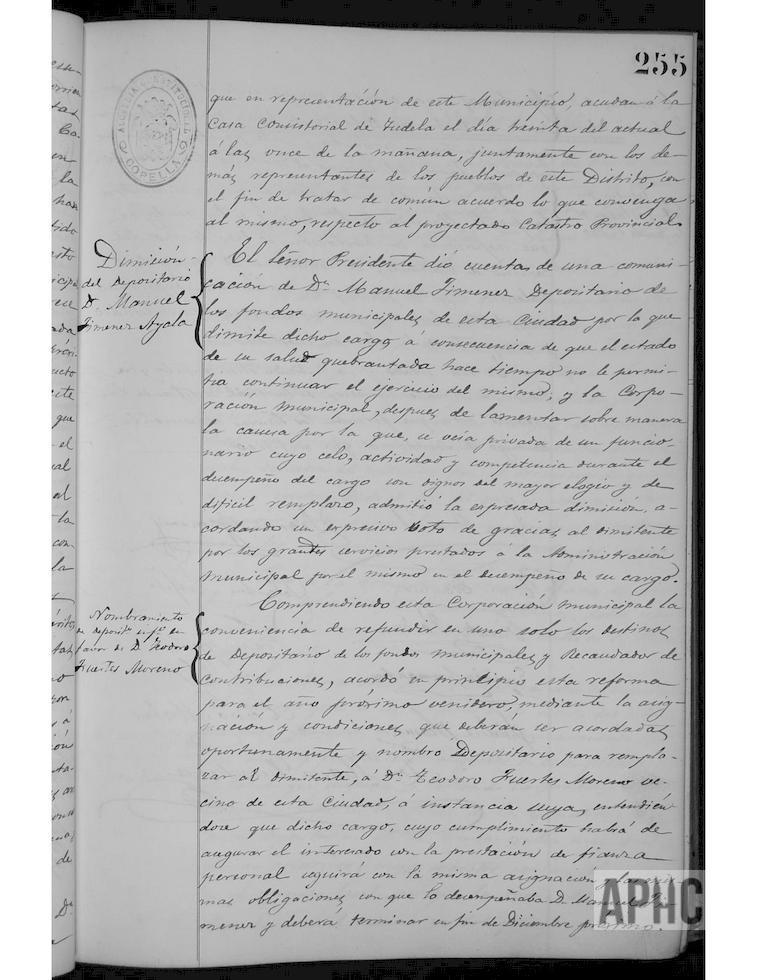 255
que en representación de este Municipio, acudan á la
Casa Consistorial de Tudela el día treinta del actual
á las once de la mañana, juntamente con los de-
más representantes de los pueblos de este Distrito, con
el fin de tratar de común acuerdo lo que convenga
al mismo, respecto al proyectado Catastro Provincial.
Dimisión
del Depositario
D. Manuel
Jimenez Ayala
El Señor Presidente dió cuentas de una comuni-
cación de Dn. Manuel Jimenez Depositario de
los fondos municipales de esta Ciudad por la que
dimite dicho cargo á consecuencia de que el estado
de su salud quebrantada hace tiempo no le permi-
tía continuar el ejercicio del mismo; y la Corpo-
ración municipal, despues de lamentar sobre manera
la causa por la que, se veía privada de un funcio-
nario cuyo celo, actividad y competencia durante el
desempeño del cargo son dignos del mayor elogio y de
dificil remplazo, admitió la expresada dimisión, a-
cordando un expresivo voto de gracias al dimitente
por los grandes servicios prestados á la Administración
Municipal por el mismo en el desempeño de su cargo.
Nombramiento
de Deposit.o en
favor de D. Teodoro
Fuertes Moreno
Comprendiendo esta Corporación municipal la
conveniencia de refundir en uno solo los destinos
de Depositario de los fondos municipales y Recaudador de
Contribuciones, acordó en principio esta reforma
para el año próximo venidero, mediante la asig-
nación y condiciones que deberán ser acordadas
oportunamente y nombró Depositario para rempla-
zar al dimitente, á Dn. Teodoro Fuertes Moreno ve-
cino de esta Ciudad, á instancia suya, entendién-
dose que dicho cargo, cuyo cumplimiento habrá de
asegurar el interesado con la prestación de fianza
personal seguirá con la misma asignación y las mis-
mas obligaciones con que lo desempeñaba D. Manuel Ji-
menez y deberá terminar en fin de Diciembre próximo.
APHC